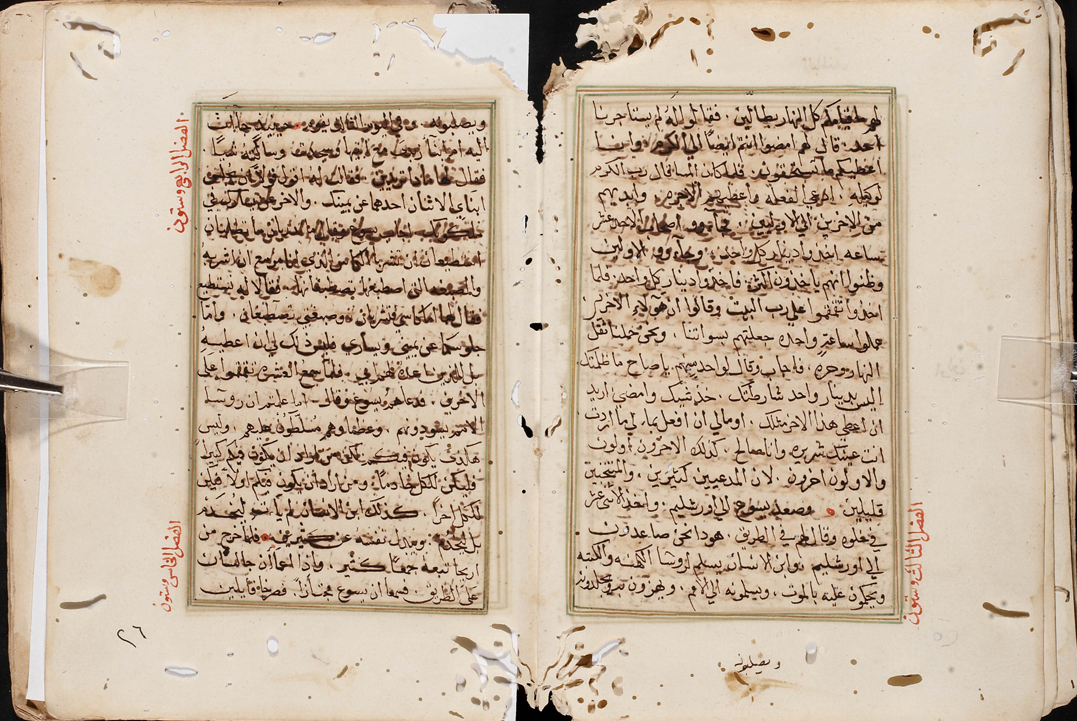 لهم لماذا قيامكم كل النهار بطالين . فقالوا له لم يستاجرنا
احد . قال لهم امضوا انتم ايضًا الي الكرم وانا
اعطيكم ما تستحقونه . فلما كان المسا قال رب الكرم
لوكيله . ادعي الفعله واعطيهم الاجره وابديهم
من الاخرين الي الاولين . فجاوو اصحاب الاحد عشر
ساعه اخذوا دينار كل واحد . وجاوو الاولين
وظنوا انهم ياخذون اكثر . فاخذوا دينار كل واحد . فلما
اخذوا تقمقموا علي رب البيت وقالوا ان هولاء الاخرين
عملوا ساعة واحده جعلتهم اسواتنا . ونحن حملنا ثقل
النهار وحره . فاجاب وقال لواحد منهم . يا صاح ما ظلمتك
اليس بدينار واحد شارطتك . خذ شيك وامضي اريد
ان اعطي هذا الاخر مثلك . اومالي ان افعل بمالي ما اردت
ان عينك شريره وانا صالح . كذلك الاخرون اولون
والاولون اخرون . لان المدعيين كثيرين . والمنتخبين
قليلين . وصعد يسوع الي اورشليم . واخذ الاثني عشر
في خلوه وقال لهم في الطريق . هوذا نحن صاعدون
الي اورشليم . وابن الانسان يسلم لروسا الكهنه والكتبه
ويحكمون عليه بالموت . ويسلمونه الي الامم . ويهزون به ويجلدونه
الفصل الثالث وستون
ويصلبونه
ويصلبونه وفي اليوم الثالث يقوم . حينيذ جات
اليه ام ابنا زبدي مع ابنيها وسجدت وسالته شيًا .
فقال لها ماذا تريدين . فقالت له ان يجلس
ابناي الاثنان احدهما عن يمينك . والاخر عن يسارك في
ملكوتك . اجاب يسوع وقال لهم
اتستطيعان ان تشربا الكاس الذي انا مزمع ان اشربه
والصبغه التي اصطبغها تصطبغانها . فقالا له نستطيع
فقال لهما اما كاسي فتشربان . وصبغتي تصطبغان . واما
جلوسكما عن يميني ويساري فليس ذلك لي ان اعطيه
بل للذين اعد لهم من ابي . فلما سمع العشره تقمقموا علي
الاخوين . فدعاهم يسوع وقال . اما علمتم ان روسا
الامم يسودونهم . وعظماوهم مسلطون عليهم . وليس
هكذا يكون فيكم لكن من اراد ان يكون فيكم كبيرًا
فليكن لكم خادمًا . ومن اراد ان يكون فيكم اولا فليكن
لكم اخرًا . كذلك ابن الانسان لم يات ليُخدم
بل ليَخدم . ويبذل نفسه عن كثيرين . فلما خرج من
اريحا تبعه جمعًا كثير . واذا اعماان جالسان
علي الطريق . فسمعا ان يسوع مجتازًا . فصرخا قايلين
الفصل الرابع وستون
الفصل الخامس وستون
٢٦